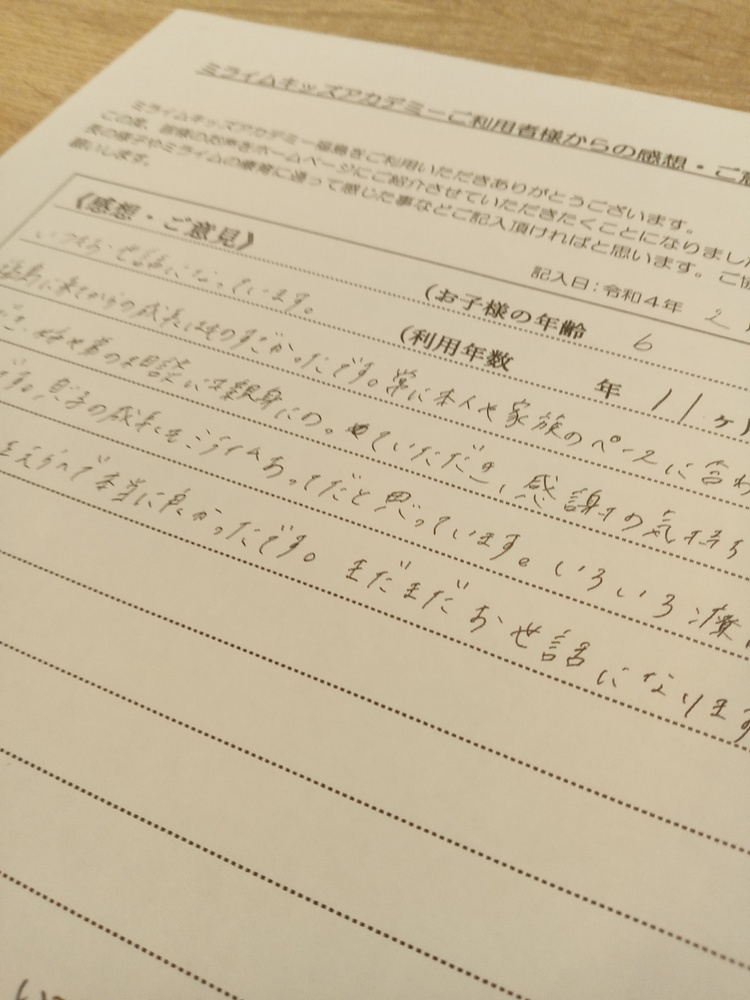 ミライムキッズアカデミーご利用者様からの感想・ご意
ミライムキッズアカデミー福島をご利用いただきありがとうございます。
この度、皆様のお声をホームページにご紹介させていただきたくことになりまし
夫の様子やミライムの療育に通って感じた事などご記入頂ければと思います。ご協
願いします。
記入日：令和4年 2
《感想・ご意見》
(お子様の年齢 6
(利用年数 年 11ヶ月
いつもお世話になっています。
に来てからの成長はものすごかったです。常に本人や家族のペースに合わ
の相談にも親身にの。せていただき、感謝の気持ち
です。息子の成長もミライムあってだと思っています。いろいろ
えらんで本当に良かったです。まだまだお世話になります